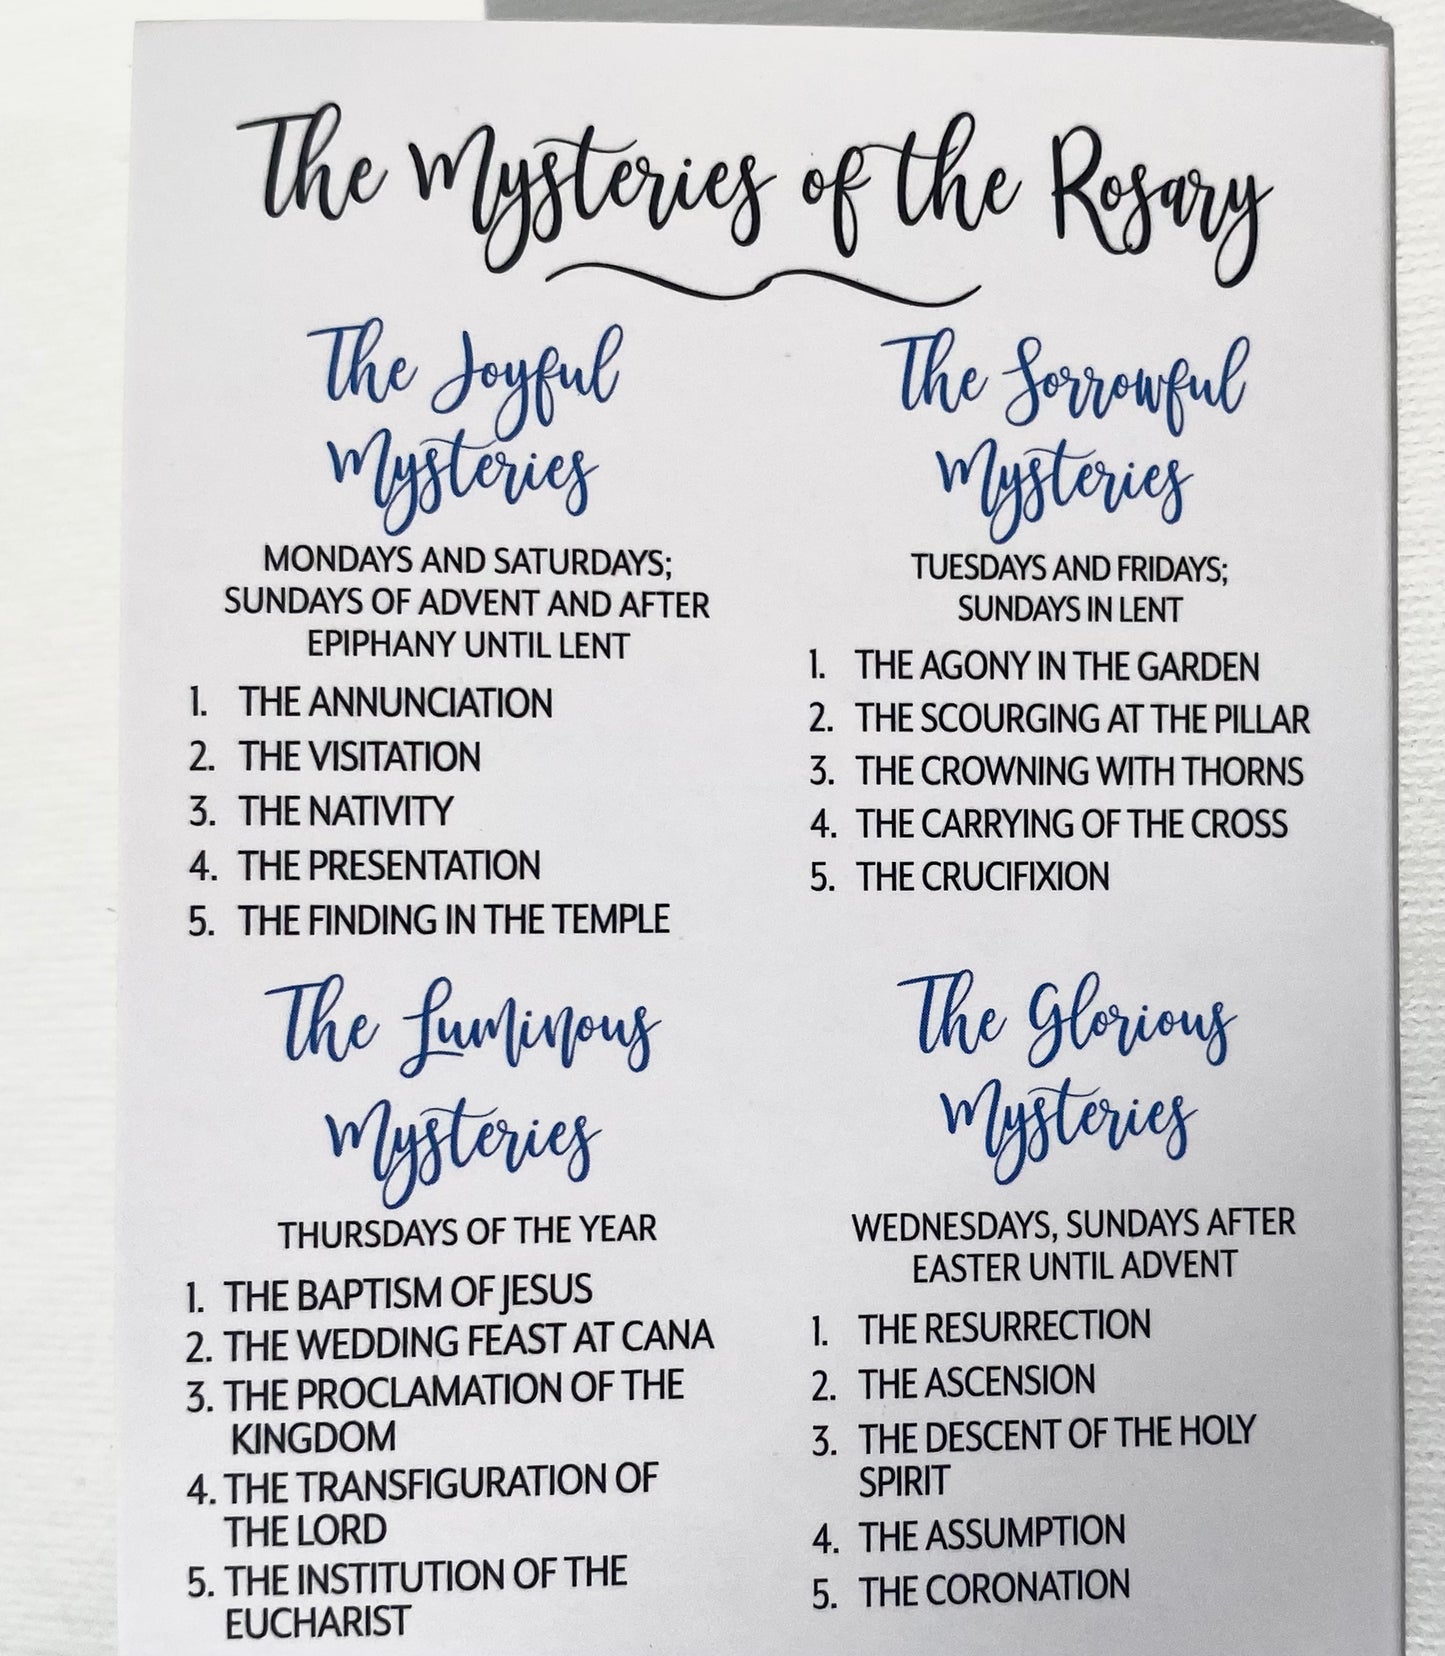 The Mysteries of the Rosary
The Joyful
Mysteries
MONDAYS AND SATURDAYS;
SUNDAYS OF ADVENT AND AFTER
EPIPHANY UNTIL LENT
1. THE ANNUNCIATION
2. THE VISITATION
3. THE NATIVITY
4. THE PRESENTATION
5. THE FINDING IN THE TEMPLE
The Sorrowful
Mysteries
TUESDAYS AND FRIDAYS;
SUNDAYS IN LENT
1. THE AGONY IN THE GARDEN
2. THE SCOURGING AT THE PILLAR
3. THE CROWNING WITH THORNS
4. THE CARRYING OF THE CROSS
5. THE CRUCIFIXION
The Luminous
Mysteries
THURSDAYS OF THE YEAR
1. THE BAPTISM OF JESUS
2. THE WEDDING FEAST AT CANA
3. THE PROCLAMATION OF THE
KINGDOM
4. THE TRANSFIGURATION OF
THE LORD
5. THE INSTITUTION OF THE
EUCHARIST
The Glorious
Mysteries
WEDNESDAYS, SUNDAYS AFTER
EASTER UNTIL ADVENT
1. THE RESURRECTION
2. THE ASCENSION
3. THE DESCENT OF THE HOLY
SPIRIT
4. THE ASSUMPTION
5. THE CORONATION